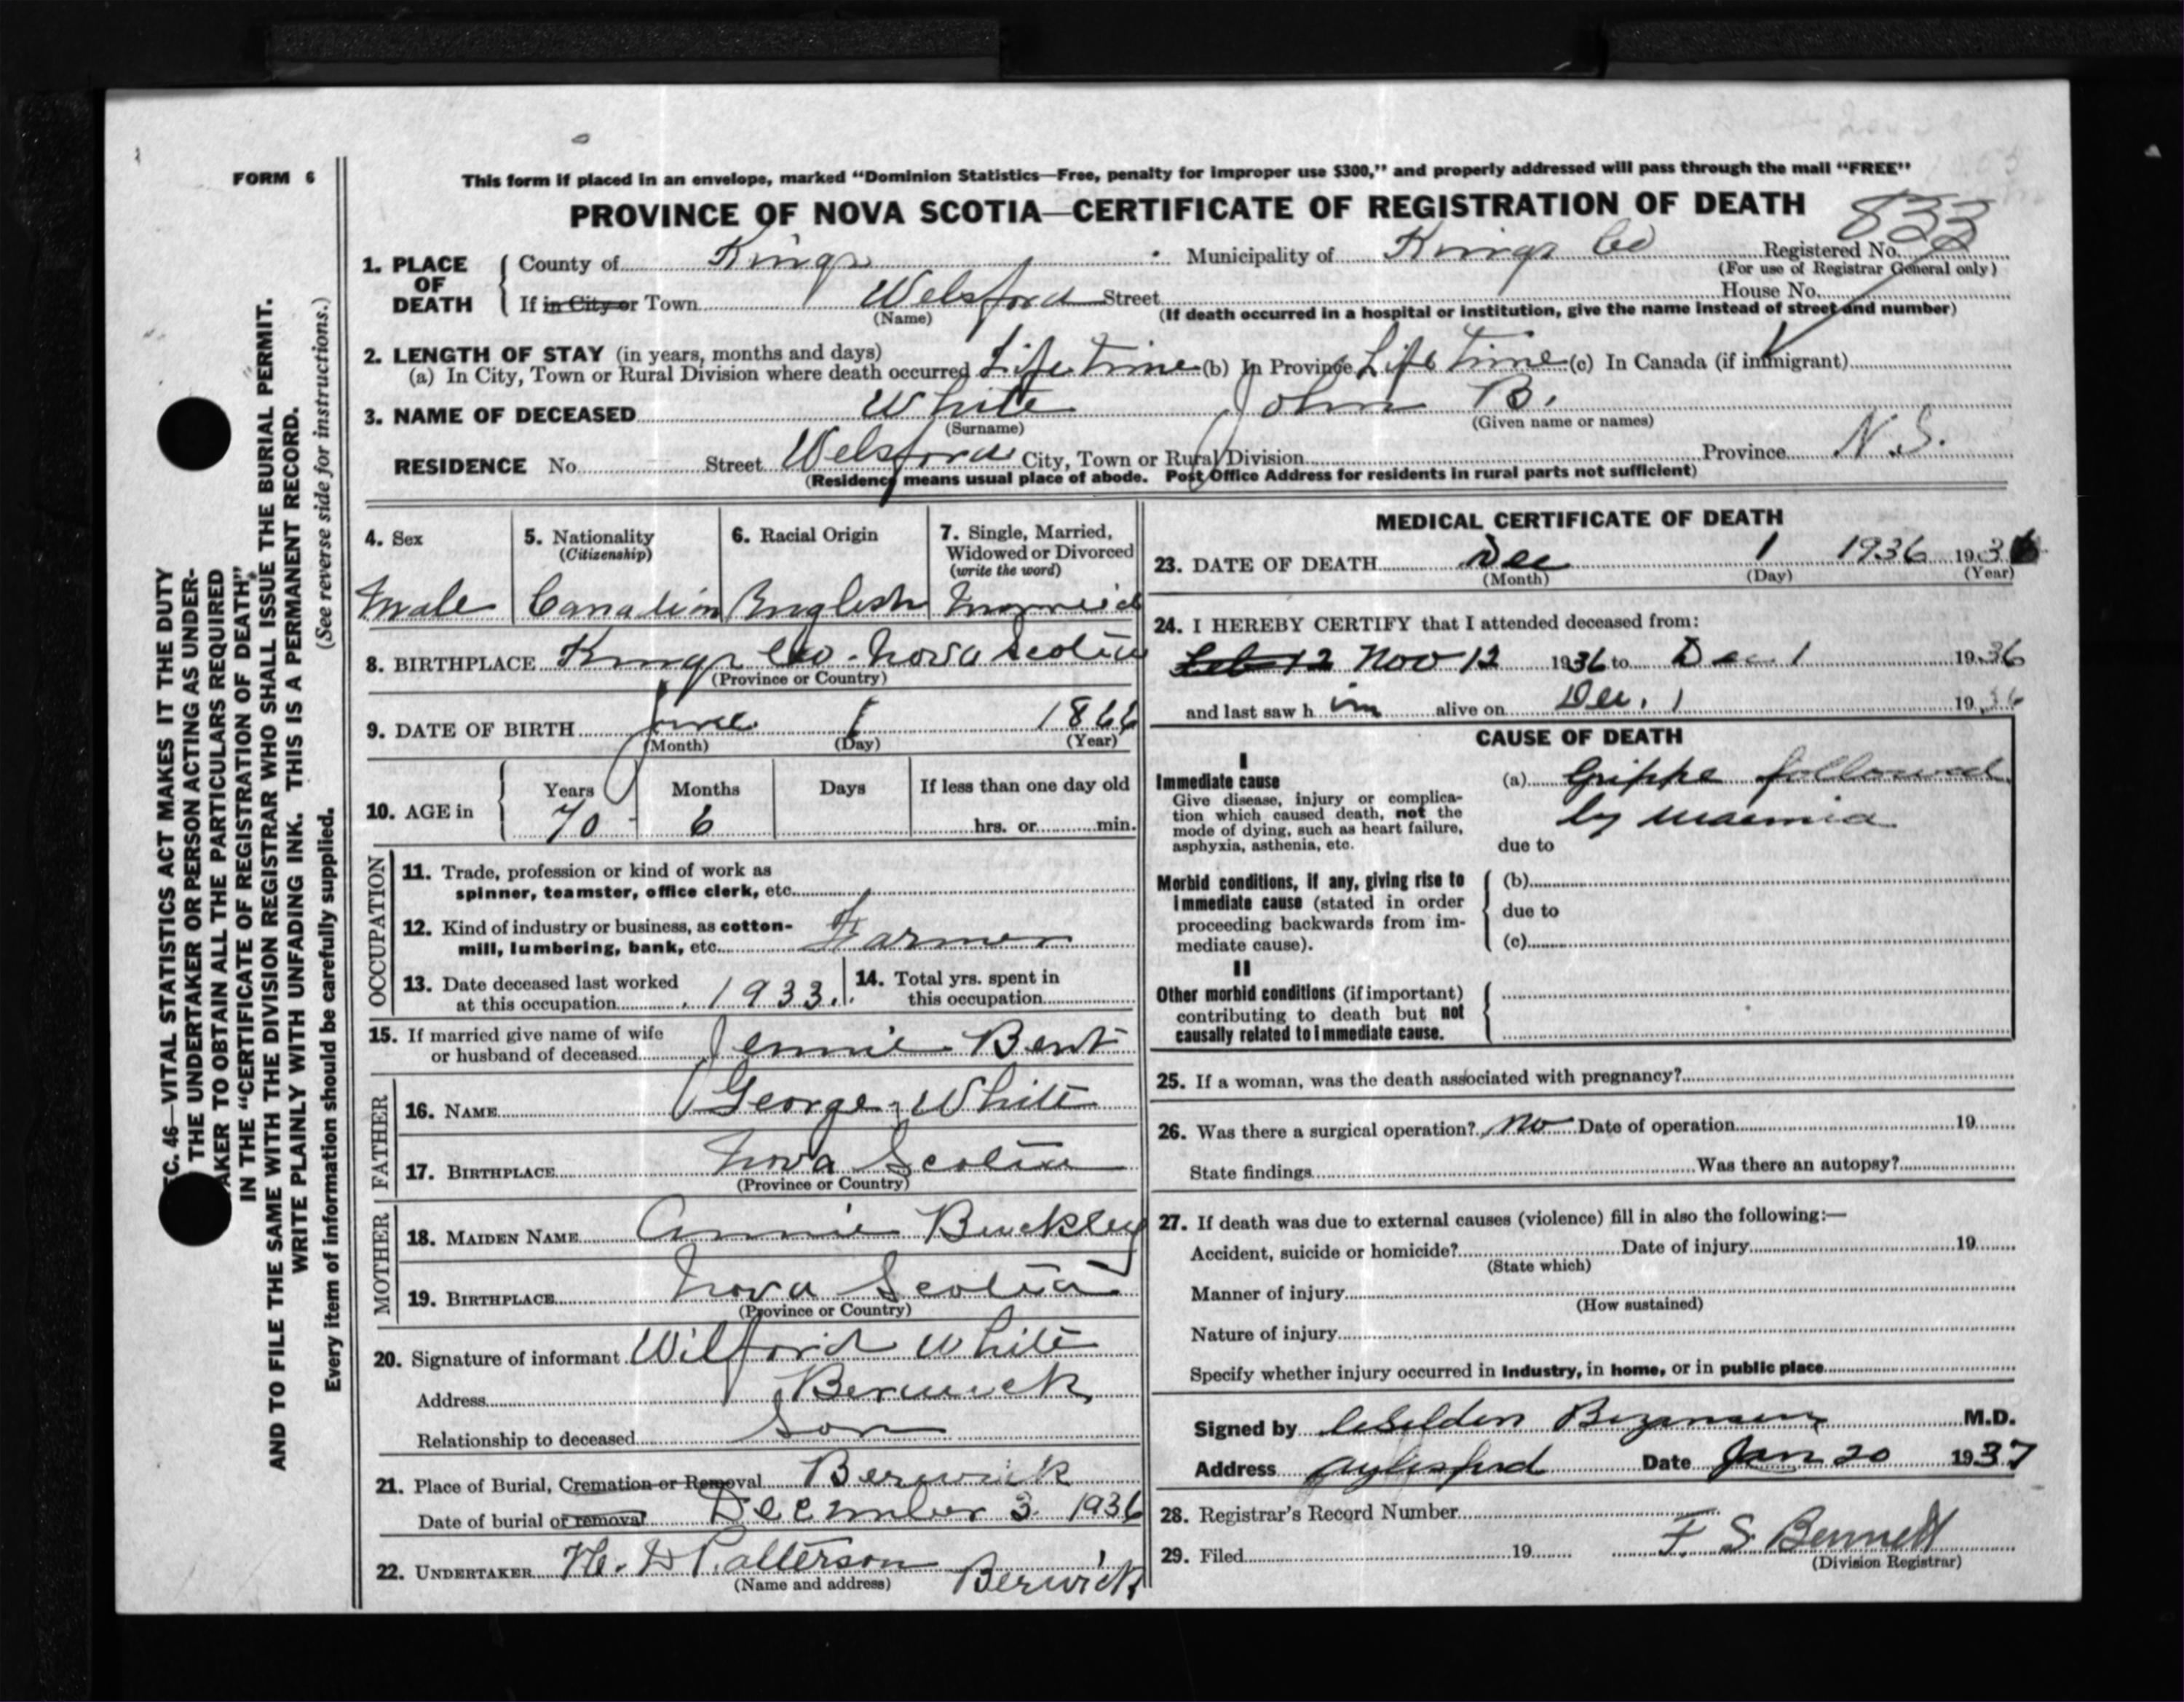 FORM 6
This form if placed in an envelope, marked "Dominion Statistics—Free, penalty for improper use $300," and properly addressed will pass through the mail "FREE"
PROVINCE OF NOVA SCOTIA—CERTIFICATE OF REGISTRATION OF DEATH
833
1. PLACE OF DEATH
County of Kings Municipality of Kings Co Registered No.
(For use of Registrar General only)
If in City or Town Welsford Street House No.
(Name) (If death occurred in a hospital or institution, give the name instead of street and number)
2. LENGTH OF STAY (in years, months and days)
(a) In City, Town or Rural Division where death occurred Life Time (b) In Province Life Time (c) In Canada (if immigrant)
3. NAME OF DECEASED White John B.
(Surname) (Given name or names)
RESIDENCE No. Street Welsford City, Town or Rural Division Province N.S.
(Residence means usual place of abode. Post Office Address for residents in rural parts not sufficient)
4. Sex 5. Nationality (Citizenship) 6. Racial Origin 7. Single, Married, Widowed or Divorced (write the word)
Male Canadian English Married
8. BIRTHPLACE Kings Co. Nova Scotia
(Province or Country)
9. DATE OF BIRTH June 1 1866
(Month) (Day) (Year)
10. AGE in Years Months Days If less than one day old
70 6 hrs. or min.
OCCUPATION
11. Trade, profession or kind of work as
spinner, teamster, office clerk, etc.
12. Kind of industry or business, as cotton-
mill, lumbering, bank, etc. Farmer
13. Date deceased last worked
at this occupation 1933.
14. Total yrs. spent in
this occupation
15. If married give name of wife
or husband of deceased Jennie Bent
FATHER
16. NAME George White
17. BIRTHPLACE Nova Scotia
(Province or Country)
MOTHER
18. MAIDEN NAME Annie Buckley
19. BIRTHPLACE Nova Scotia
(Province or Country)
20. Signature of informant Wilford White
Address Berwick
Relationship to deceased Son
21. Place of Burial, Cremation or Removal Berwick
Date of burial or removal December 3 1936
22. UNDERTAKER H. D Patterson Berwick
(Name and address)
MEDICAL CERTIFICATE OF DEATH
23. DATE OF DEATH Dec 1 1936 1936
(Month) (Day) (Year)
24. I HEREBY CERTIFY that I attended deceased from:
Feb 12 Nov 12 1936 to Dec. 1 1936
and last saw h im alive on Dec. 1 1936
CAUSE OF DEATH
I
Immediate cause
Give disease, injury or complica-
tion which caused death, not the
mode of dying, such as heart failure,
asphyxia, asthenia, etc.
(a) Grippe followed
by uraemia
due to
Morbid conditions, if any, giving rise to
immediate cause (stated in order
proceeding backwards from im-
mediate cause).
(b)
due to
(c)
II
Other morbid conditions (if important)
contributing to death but not
causally related to immediate cause.
25. If a woman, was the death associated with pregnancy?
26. Was there a surgical operation? no Date of operation 19
State findings Was there an autopsy?
27. If death was due to external causes (violence) fill in also the following:—
Accident, suicide or homicide? Date of injury 19
(State which)
Manner of injury
(How sustained)
Nature of injury
Specify whether injury occurred in Industry, in home, or in public place
Signed by Selden Bezanson M.D.
Address Aylesford Date Jan 20 1937
28. Registrar's Record Number
29. Filed 19 F. S Bennett
(Division Registrar)
EC. 46—VITAL STATISTICS ACT MAKES IT THE DUTY
THE UNDERTAKER OR PERSON ACTING AS UNDER-
AKER TO OBTAIN ALL THE PARTICULARS REQUIRED
IN THE "CERTIFICATE OF REGISTRATION OF DEATH"
AND TO FILE THE SAME WITH THE DIVISION REGISTRAR WHO SHALL ISSUE THE BURIAL PERMIT.
WRITE PLAINLY WITH UNFADING INK. THIS IS A PERMANENT RECORD.
Every item of information should be carefully supplied. (See reverse side for instructions.)